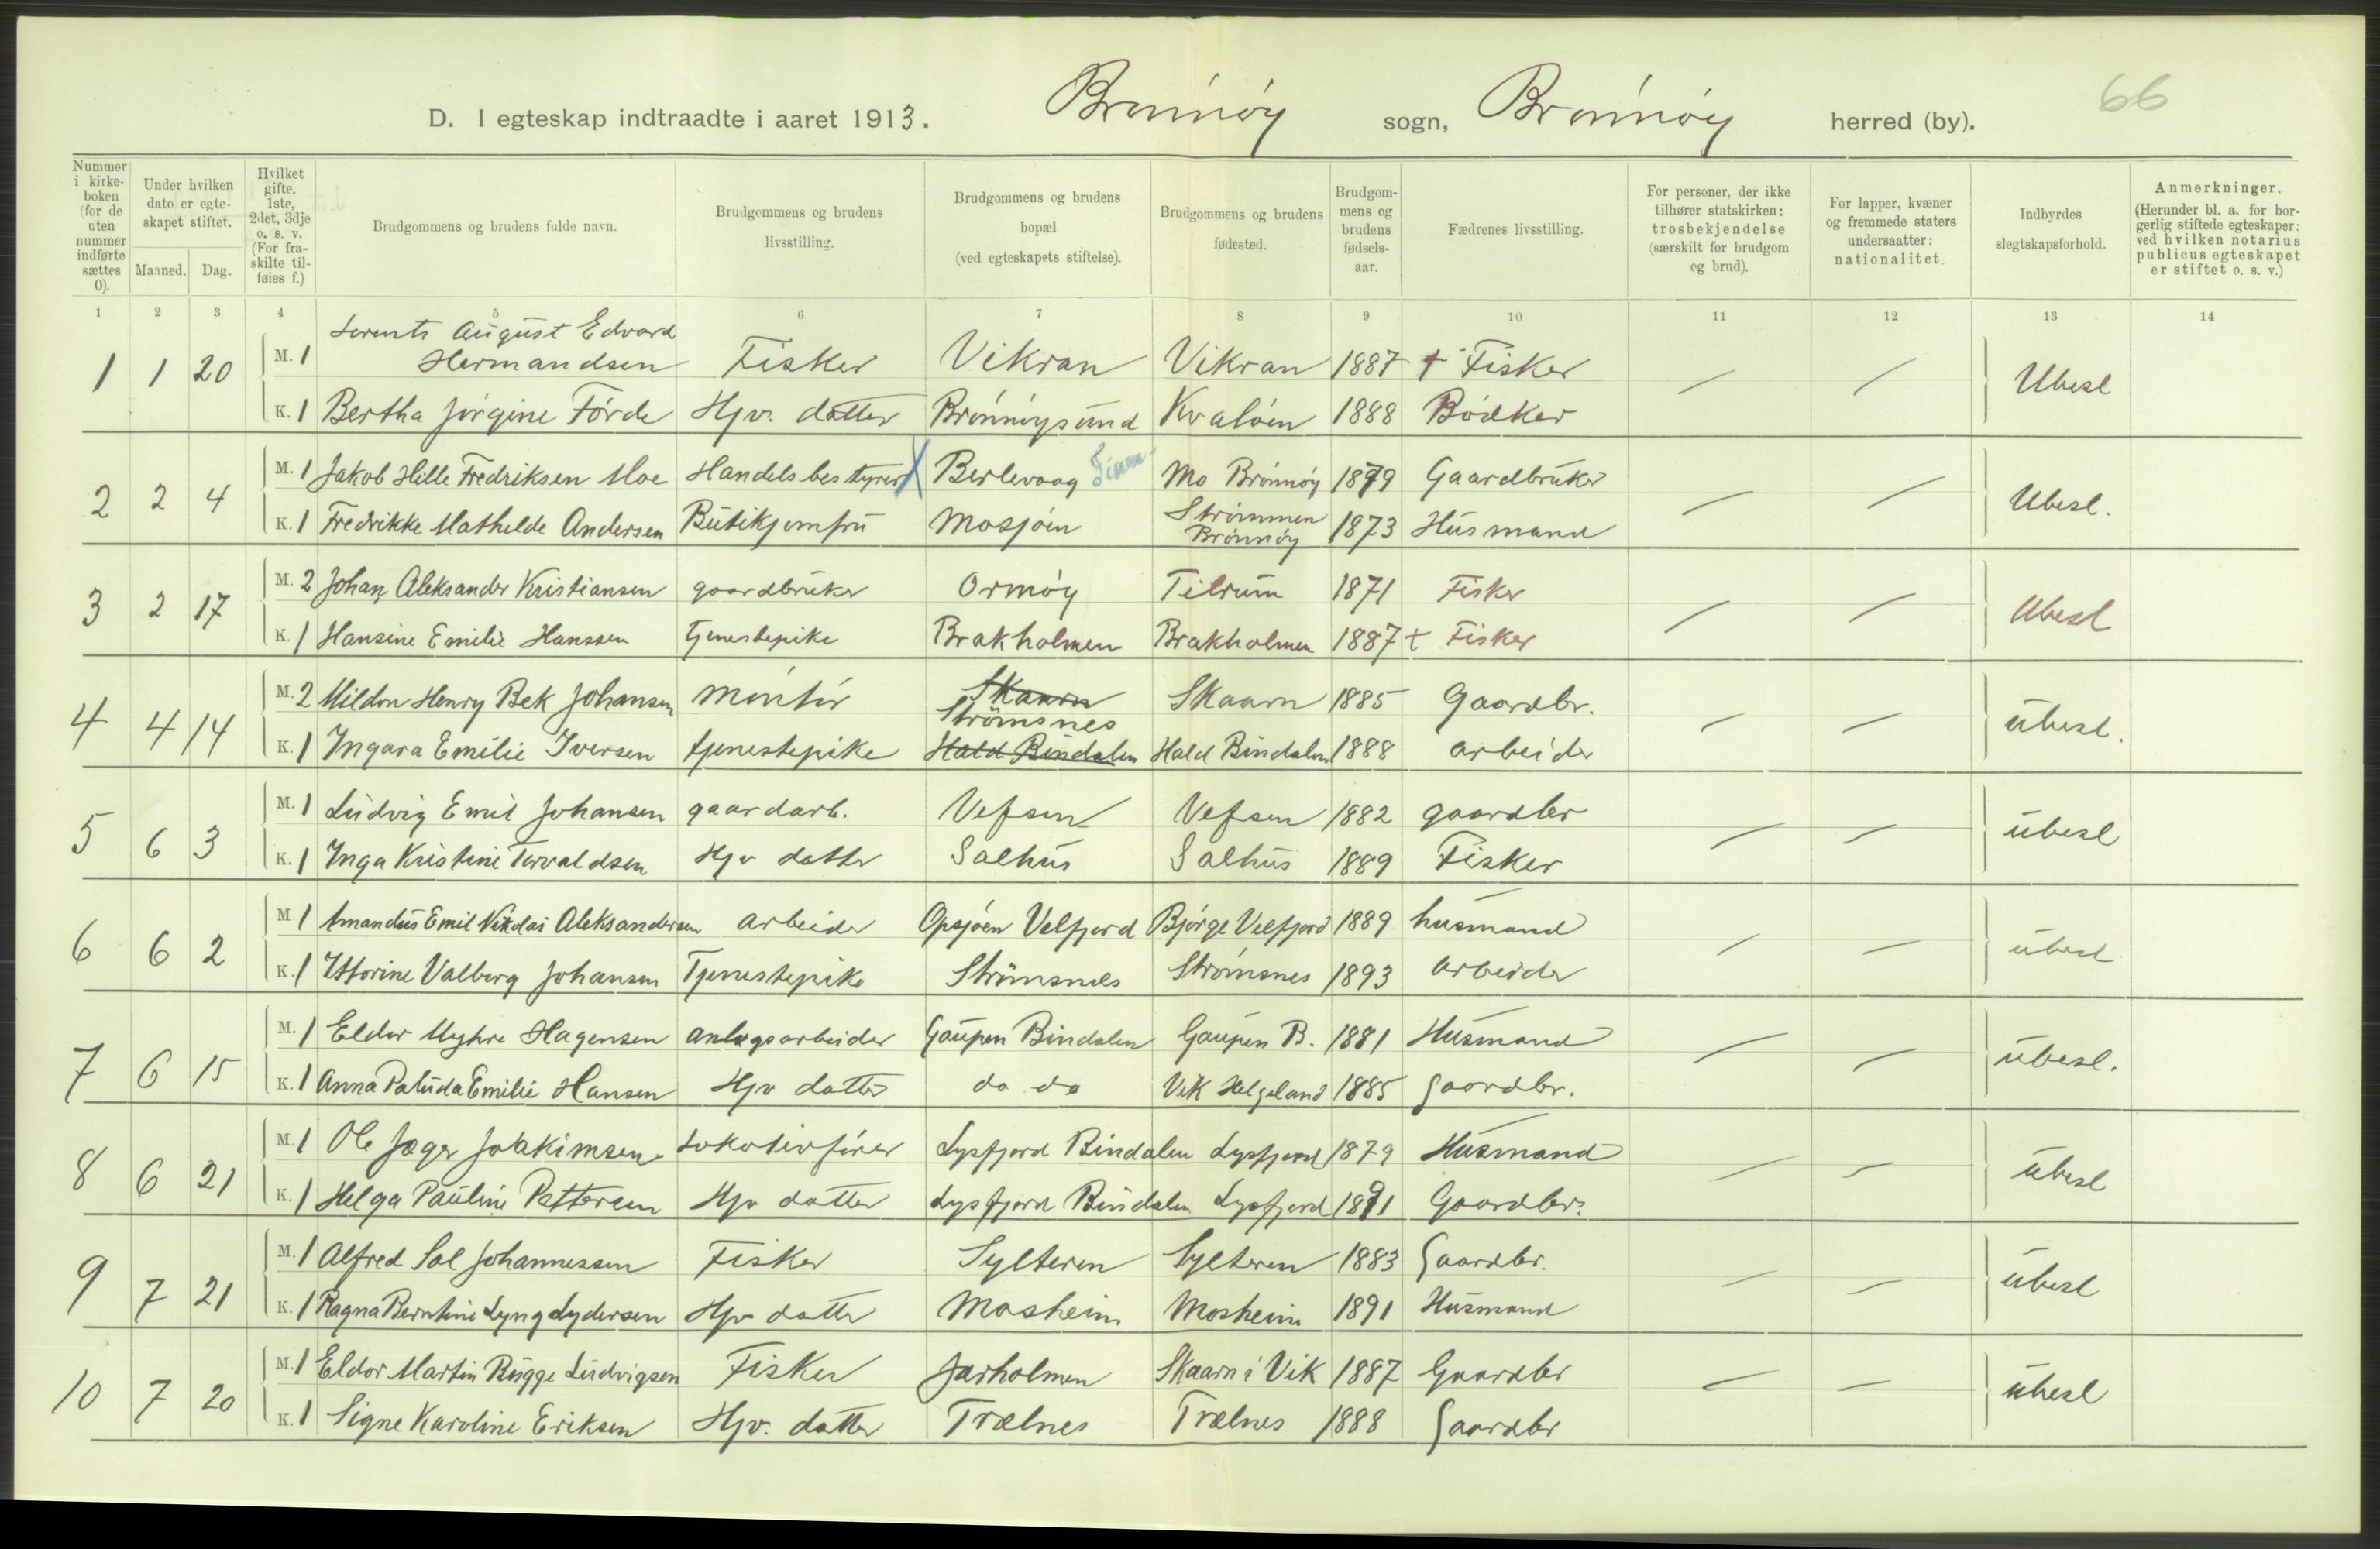 66
D. I egteskap indtraadte i aaret 1913. Brønnøy sogn, Brønnøy herred (by).
Nummer i kirkeboken (for de uten nummer indførte sættes 0).
Under hvilken dato er egteskapet stiftet.
Maaned. Dag.
Hvilket gifte. 1ste, 2det, 3dje o. s. v. (For fraskilte tilføies f.)
Brudgommens og brudens fulde navn.
Brudgommens og brudens livsstilling.
Brudgommens og brudens bopæl (ved egteskapets stiftelse).
Brudgommens og brudens fødested.
Brudgommens og brudens fødselsaar.
Fædrenes livsstilling.
For personer, der ikke tilhører statskirken: trosbekjendelse (særskilt for brudgom og brud).
For lapper, kvæner og fremmede staters undersaatter: nationalitet.
Indbyrdes slegtskapsforhold.
Anmerkninger. (Herunder bl. a. for borgerlig stiftede egteskaper: ved hvilken notarius publicus egteskapet er stiftet o. s. v.)
1 2 3 4 5 6 7 8 9 10 11 12 13 14
1 1 20 M. 1 Lorents August Edvard Hermandsen Fisker Vikran Vikran 1887 + Fisker / / Ubesl
K. 1 Bertha Jørgine Førde Hjv. datter Brønnøysund Kvaløen 1888 Bødker
2 2 4 M. 1 Jakob Hille Fredriksen Moe Handelsbestyrer X Berlevaag Finm- Mo Brønnøy 1879 Gaardbruker / / Ubesl.
K. 1 Fredrikke Mathilde Andersen Butikjomfru Mosjøen Strømmen Brønnøy 1873 Husmand
3 2 17 M. 2 Johan Aleksander Kristiansen gaardbruker Ormøy Tilrum 1871 Fisker / / Ubesl
K. 1 Hansine Emilie Hanssen tjenestepike Brakholmen Brakholmen 1887 + Fisker
4 4 14 M. 2 Mildon Henry Bek Johansen Montør Skaarn Strømsnes Skaarn 1885 Gaardbr. / / ubesl.
K. 1 Ingara Emilie Iversen tjenestepike Hald Bindalen Hald Bindalen 1888 arbeider
5 6 3 M. 1 Ludvig Emil Johansen gaardarb. Vefsen Vefsen 1882 gaardbr / / ubesl
K. 1 Inga Kristine Torvaldsen Hjv datter Salhus Salhus 1889 Fisker
6 6 2 M. 1 Amandus Emil Nikolai Aleksandersen arbeider Opsjøen Velfjord Bjørge Velfjord 1889 husmand / / ubesl
K. 1 Valborg Johansen Tjenestepike Strømsnes Strømsnes 1893 arbeider
7 6 15 M. 1 Eldor Myhre Hagensen anlægsarbeider Gaupen Bindalen Gaupen B. 1881 Husmand / / ubesl.
K. 1 Anna Paluda Emilie Hansen Hjv datter do do Vik Helgeland 1885 Gaardbr.
8 6 21 M. 1 Ole Jæger Joakimsen Lokotivfører Lysfjord Bindalen Lysfjord 1879 Husmand / / ubesl
K. 1 Helga Pauline Pettersen Hjv datter Lysfjord Bindalen Lysfjord 1891 Gaardbr.
9 7 21 M. 1 Alfred Sol Johannessen Fisker Sylteren Sylteren 1883 Gaardbr. / / ubesl
K. 1 Ragna Berntine Lyng Lydersen Hjv datter Mosheim Mosheim 1891 Husmand
10 7 20 M. 1 Eldor Martin Bugge Ludvigsen Fisker Jarholmen Skaarn i Vik 1887 Gaardbr / / ubesl
K. 1 Signe Karoline Eriksen Hjv. datter Trælnes Trælnes 1888 Gaardbr